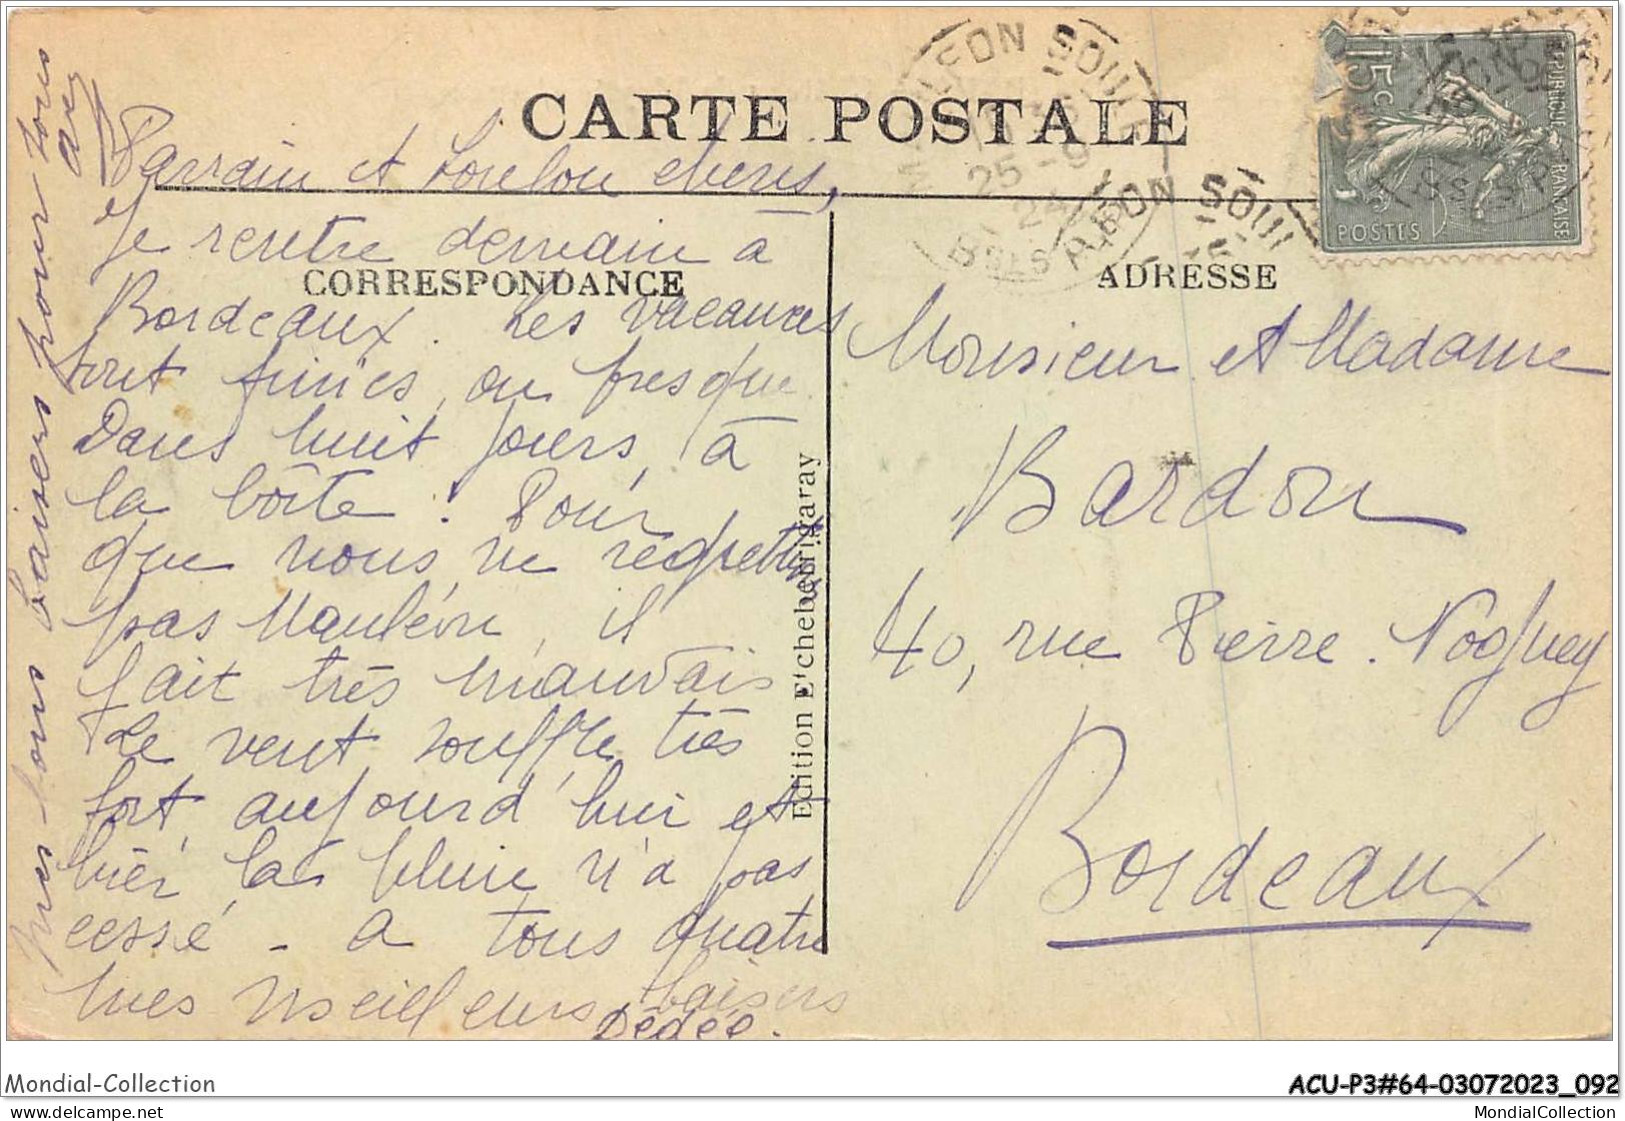 CARTE POSTALE
MAULEON SOULE
25 - 9
24
BSES PYR
EON SOUL
15c
REPUBLIQUE FRANÇAISE
POSTES
CORRESPONDANCE
ADRESSE
Parrain et Loulou cheris,
Je rentre demain à
Bordeaux. Les vacances
sont finies, ou presque
Dans huit jours, à
la boîte! Pour
que nous ne regrettions
pas Mauléon, il
fait très mauvais
Le vent souffle très
fort aujourd'hui et
hier, la pluie n'a pas
cessé - a tous quatre
mes meilleurs baisers
Dédée.
mes bons baisers pour vous
Edition Etchebehigaray
Monsieur et Madame
Bardou
40, rue Pierre. Noguey
Bordeaux
Mondial-Collection
ACU-P3#64-03072023_092
Mondial-Collection sur delcampe.net
MondialCollection